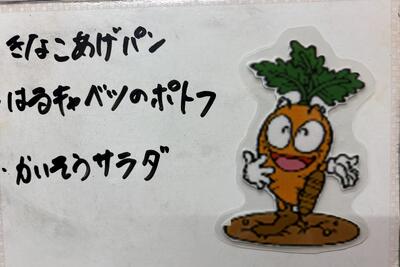 きなこあげパン
・はるキャベツのポトフ
・かいそうサラダ